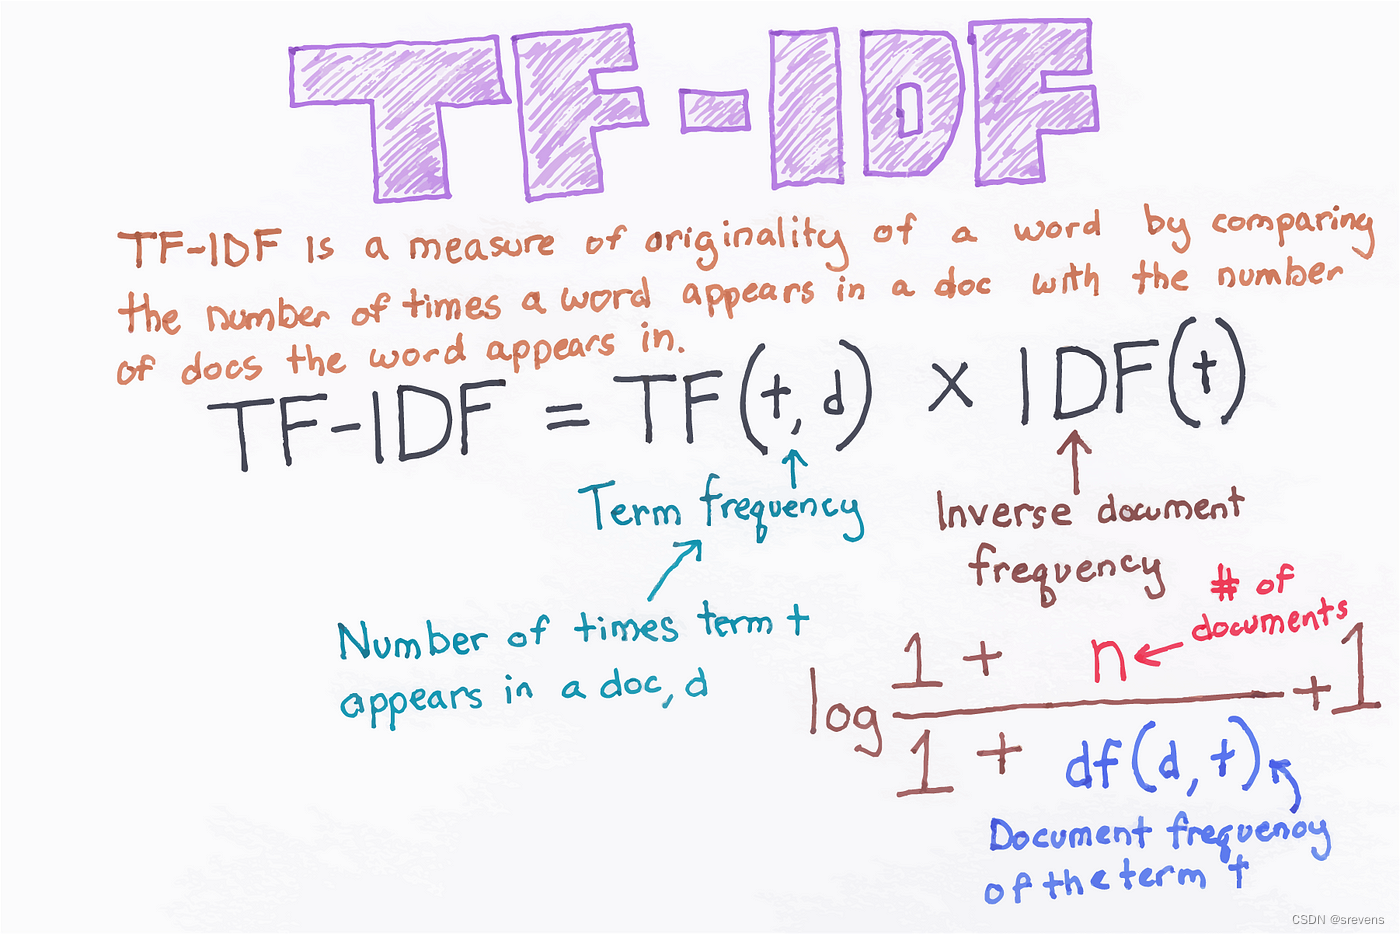 TF-IDF
TF-IDF is a measure of originality of a word by comparing
the number of times a word appears in a doc with the number
of docs the word appears in.
TF-IDF = TF(t,d) x IDF(t)
Term frequency
Inverse document
frequency
Number of times term t
appears in a doc, d
# of
documents
log 1 + n
1 + df(d,t) + 1
Document frequency
of the term t
CSDN @srevens